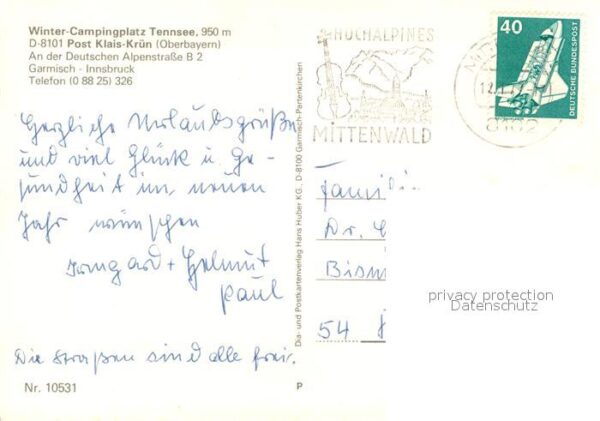 Winter-Campingplatz Tennsee, 950 m
D-8101 Post Klais-Krün (Oberbayern)
An der Deutschen Alpenstraße B 2
Garmisch - Innsbruck
Telefon (0 88 25) 326
Herzliche Urlaubsgrüße
und viel Glück u. Ge-
sundheit im neuen
Jahr wünschen
Irmgard + Helmut
Paul
Die Straßen sind alle frei.
Nr. 10531
P
Dia- und Postkartenverlag Hans Huber KG., D-8100 Garmisch-Partenkirchen
HOCHALPINES
MITTENWALD
40
DEUTSCHE BUNDESPOST
Famili
Dr.
Bism
54
privacy protection
Datenschutz